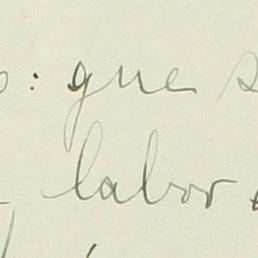 : que
labor